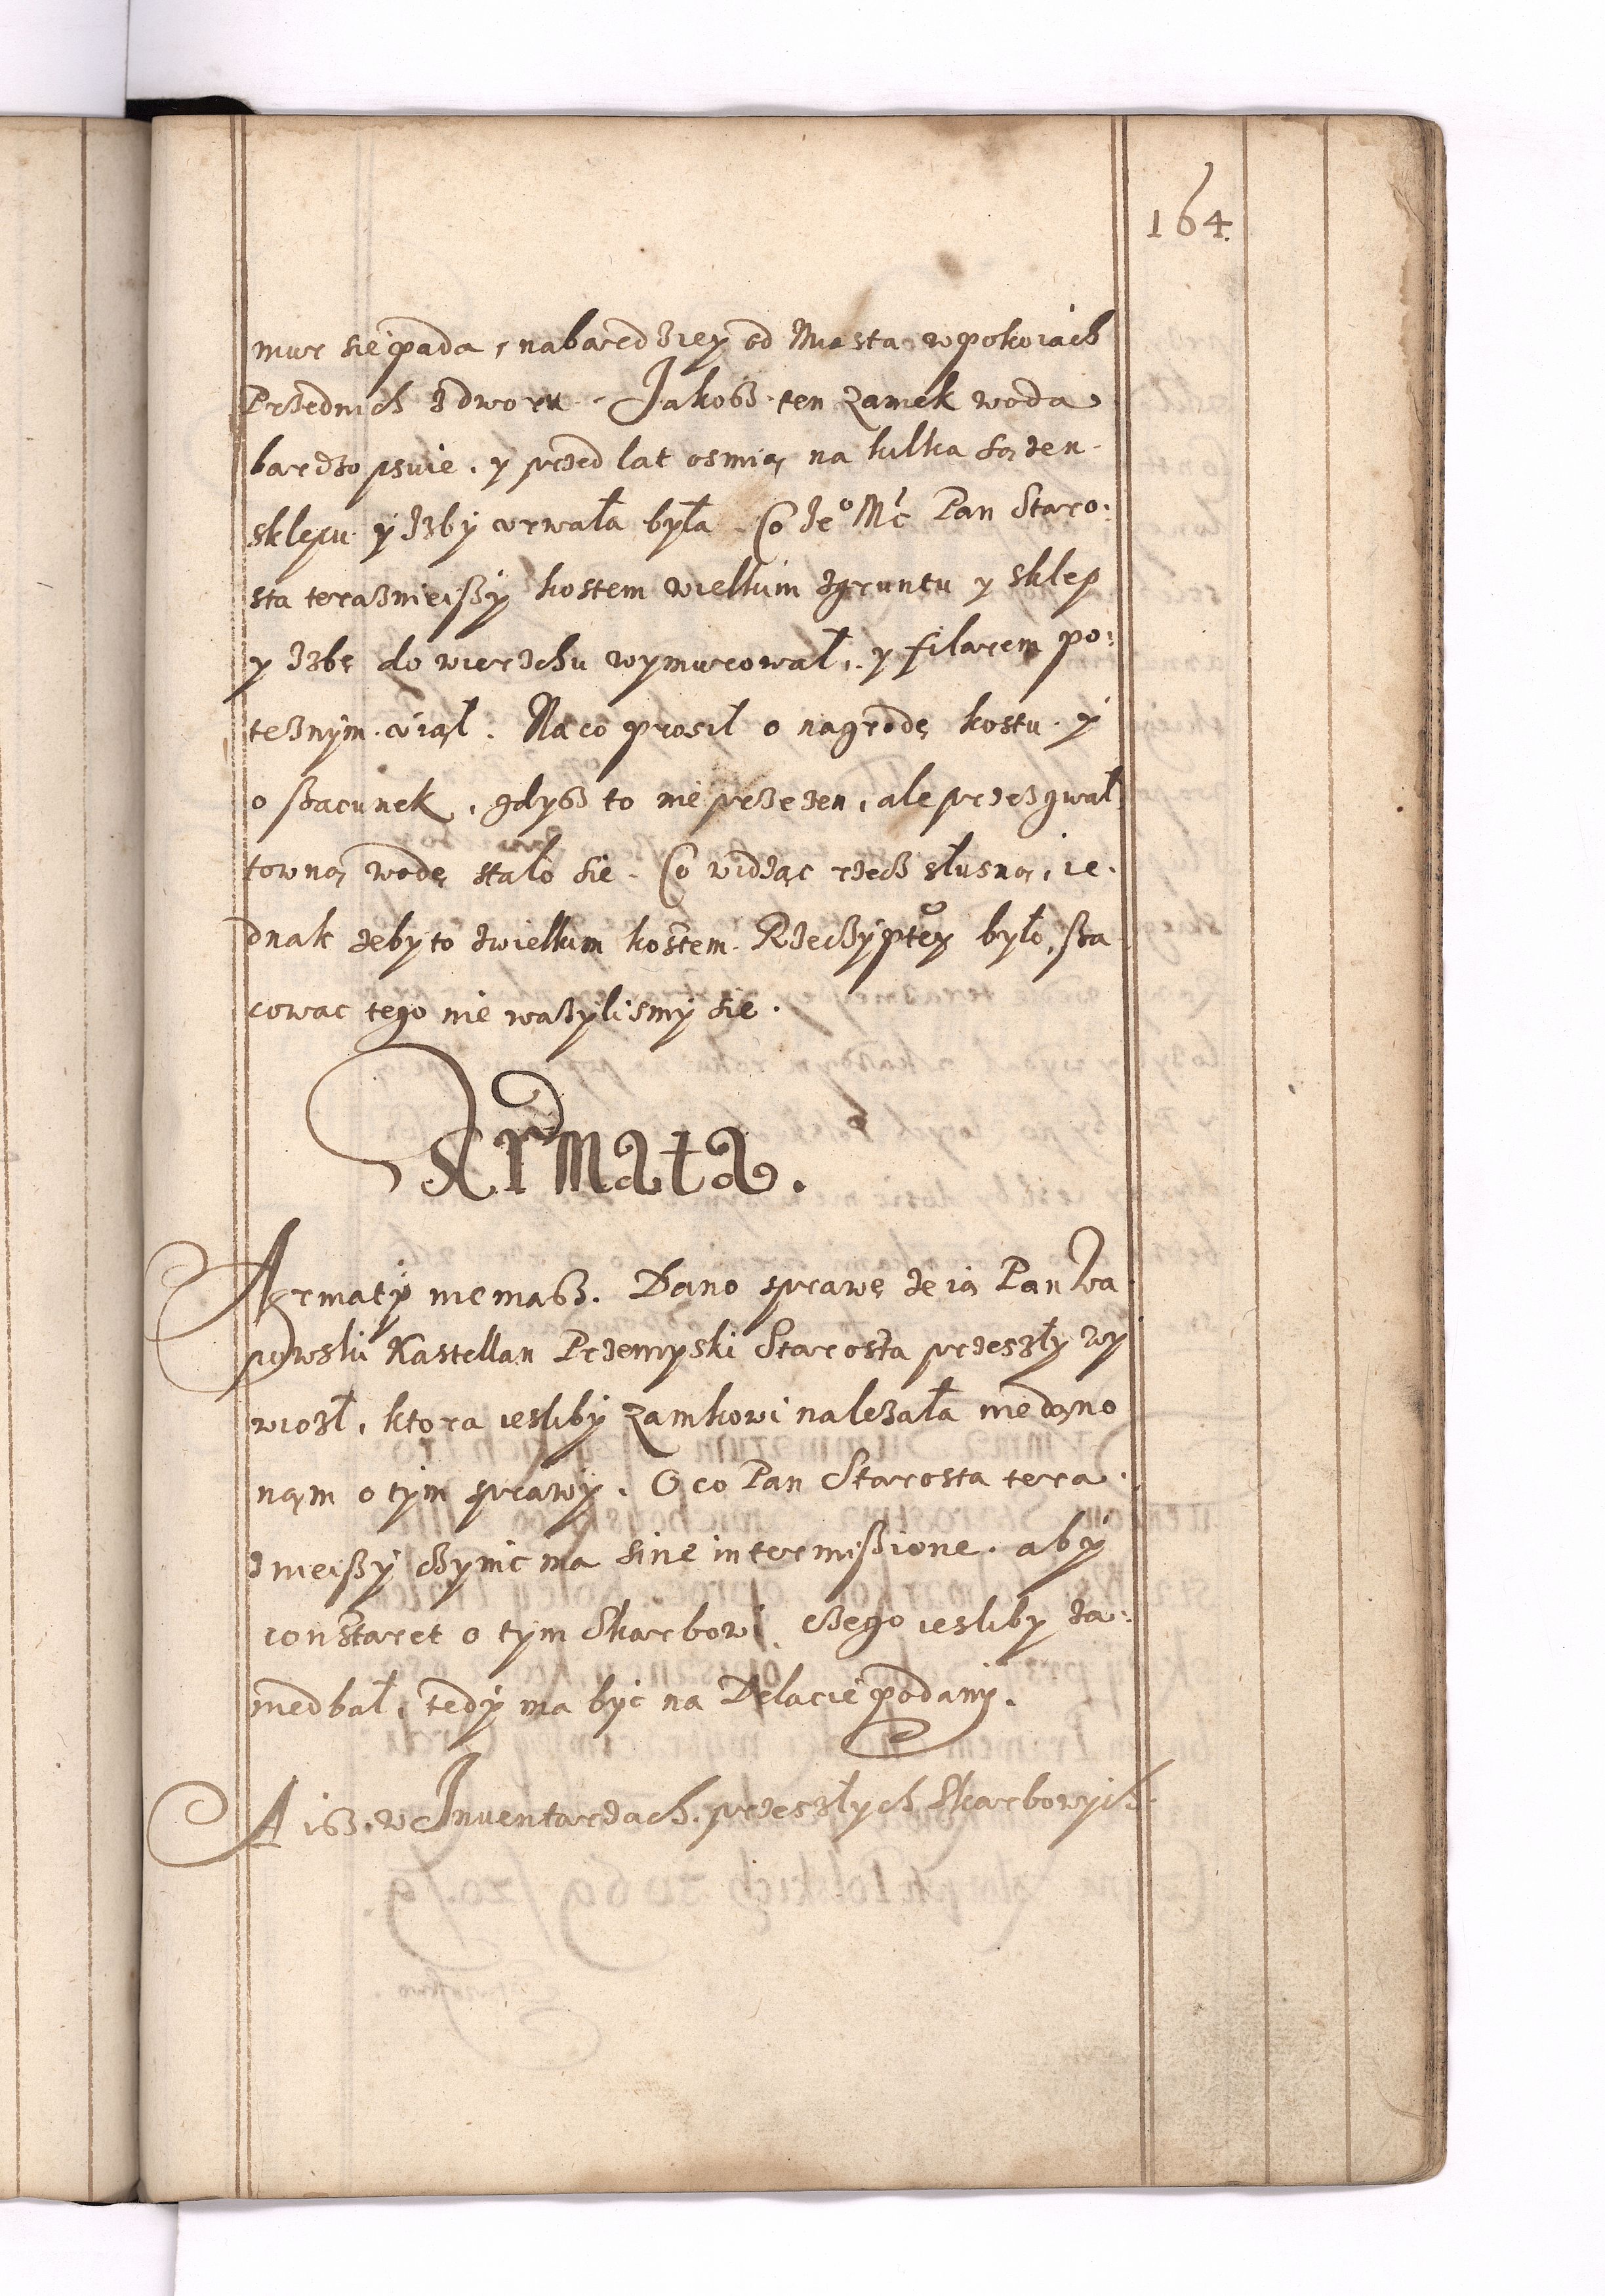 164.
mur się pada, nabardziey od Miasta w pokoiach
Przednich z dworu. Jakosz ten Zamek woda
bardzo psuie, y przed lat osmią na kilka sążen
sklepu y Izby urwała była. Co Je⁰ Mć Pan Staro:
sta teraznieiszy kostem wielkim z gruntu y sklep
y Izbę do wierzchu wymurował, y filarem po:
teznym uiął. Na co prosił o nagrodę kostu y
o szacunek, gdysz to nie przezen, ale przez gwał
towną wodę stało się. Co widząc rzecz słuszną, ie:
dnak zeby to z wielkim kosztem Rzeczyptey było, sza
cowac tego nie wazylismy się.
Armata.
Armaty niemasz. Dano sprawę ze ią Pan Wa
powski Kastellan Przemyski Starosta przeszły wy
wiozł, ktora iesliby Zamkowi nalezała nie dano
nąm o tym sprawy. O co Pan Starosta tera:
znieiszy czynic ma sine intermissione, aby
constaret o tym Skarbowi. czego iesliby za:
niedbał, tedy ma byc na Delacie podany.
A isz w Inventarzach przeszłych Skarbowych